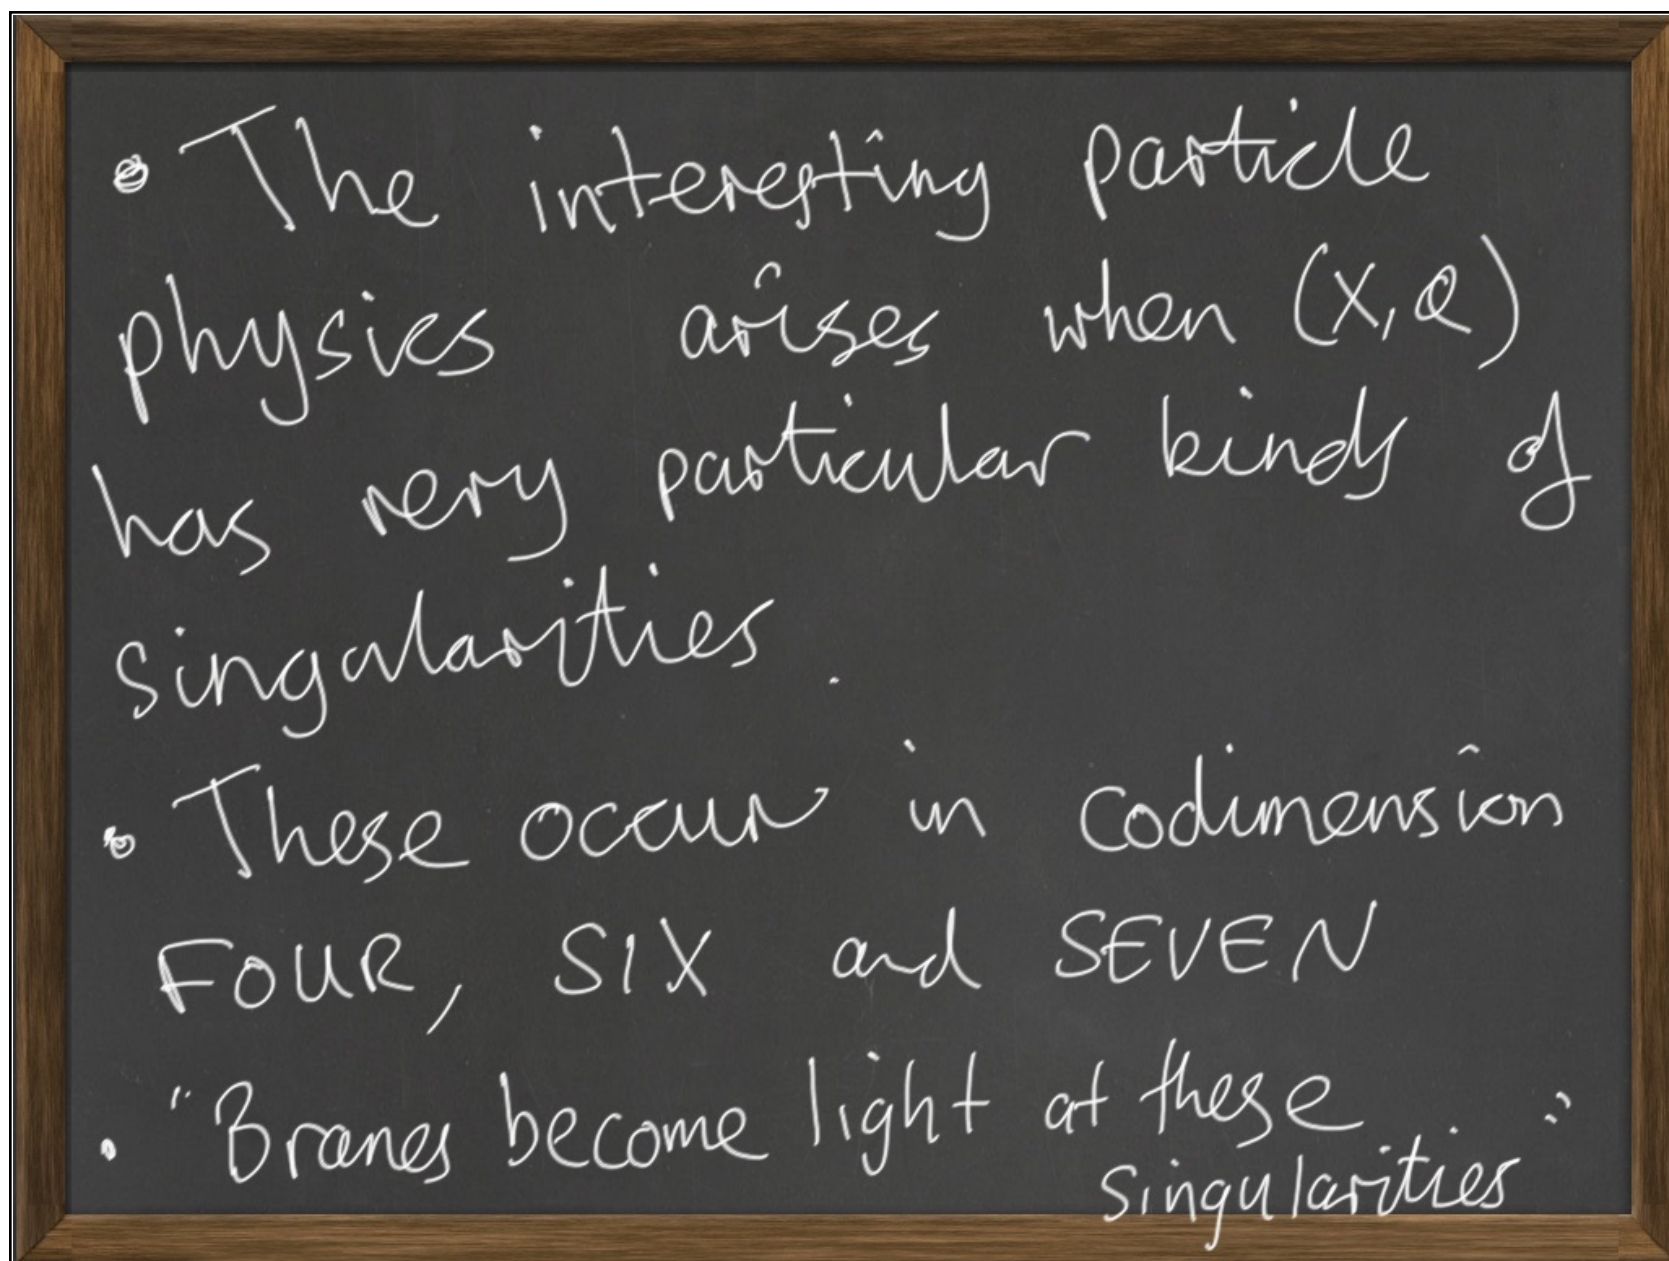 • The interesting particle
physics arises when (X, φ)
has very particular kinds of
singularities.
• These occur in codimension
FOUR, SIX and SEVEN
• "Branes become light at these
singularities"